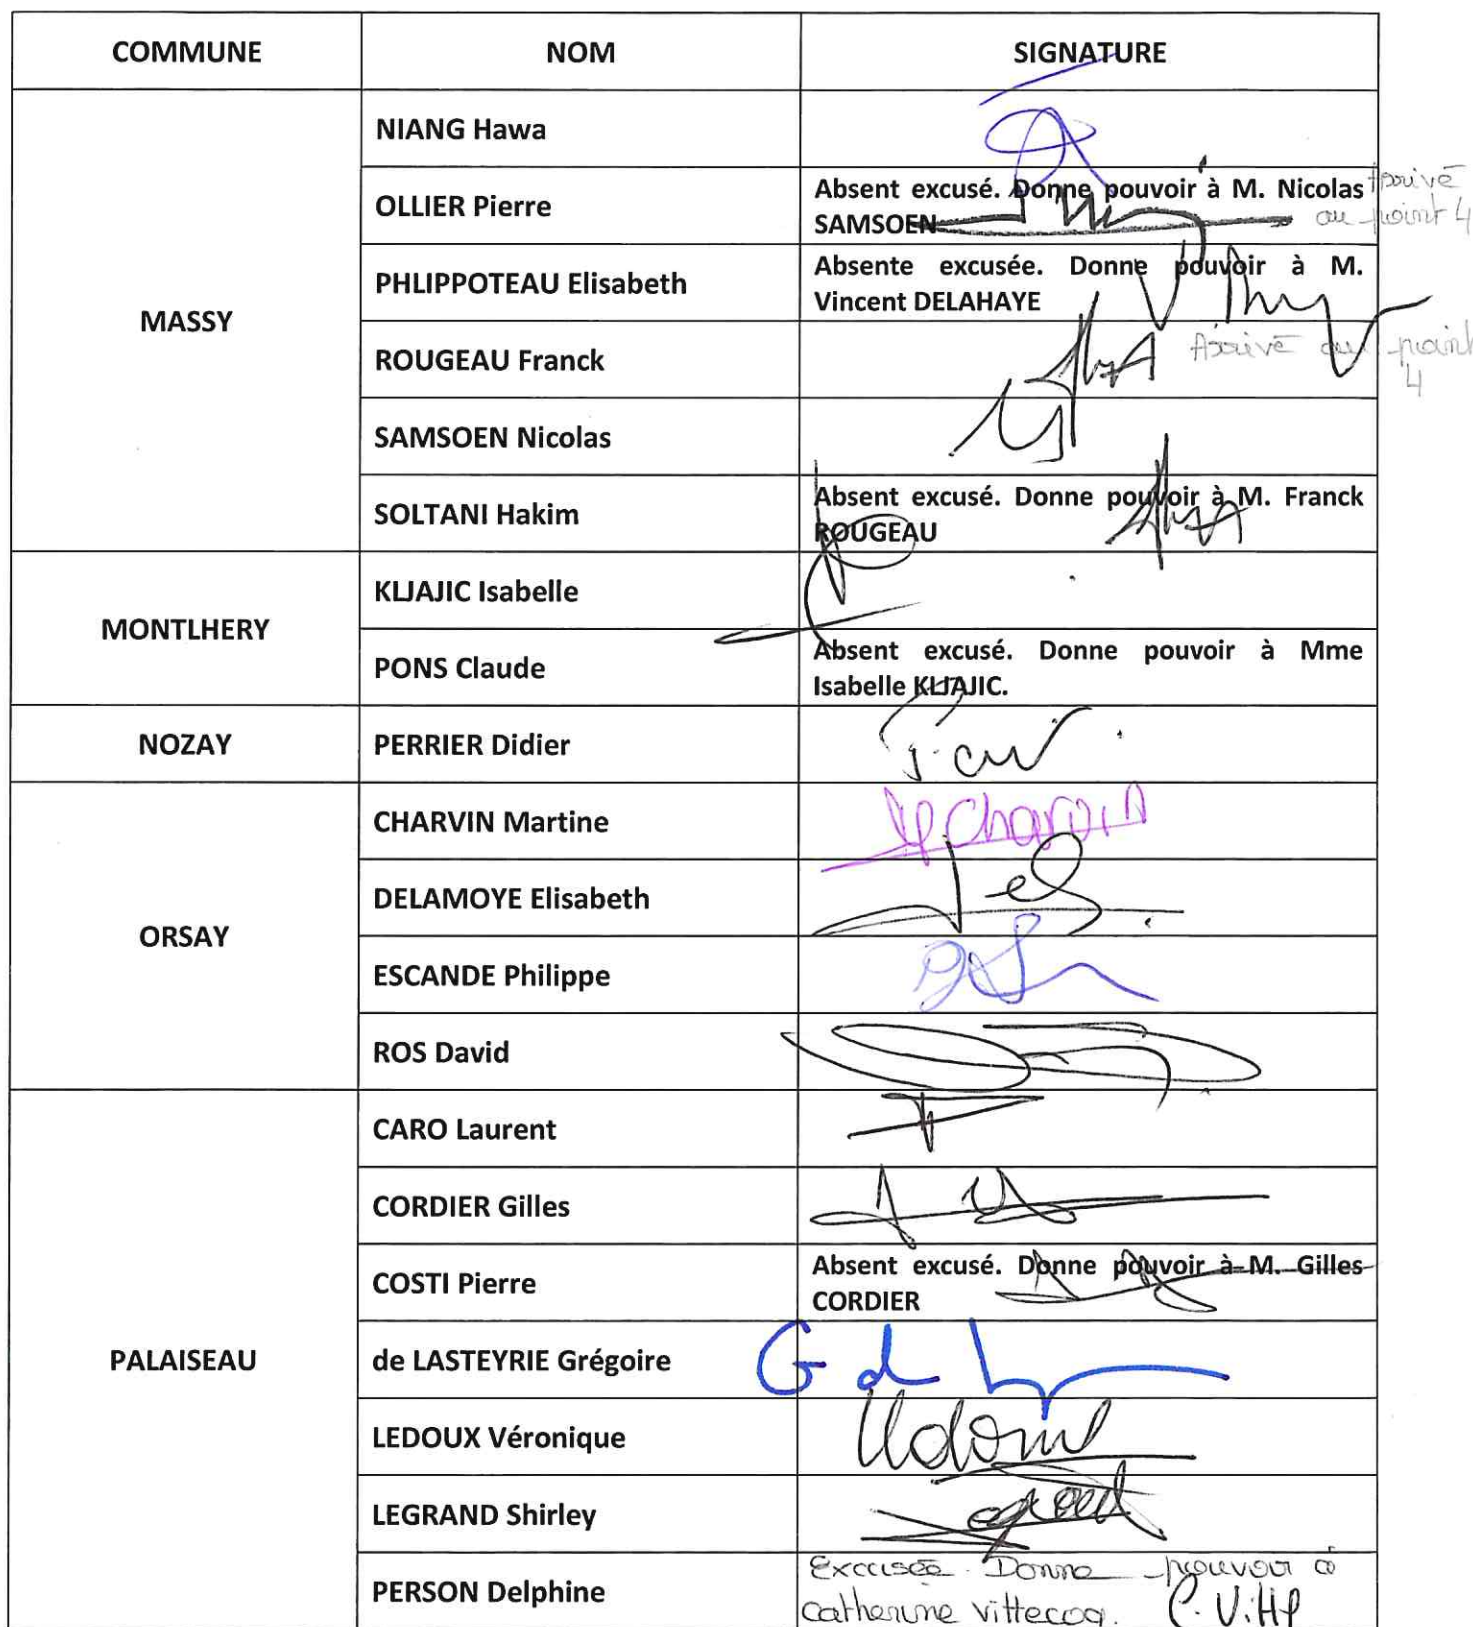 COMMUNE NOM SIGNATURE
MASSY
NIANG Hawa
OLLIER Pierre
Absent excusé. Donne pouvoir à M. Nicolas
SAMSOEN
Arrivé
au point 4
PHLIPPOTEAU Elisabeth
Absente excusée. Donne pouvoir à M.
Vincent DELAHAYE
ROUGEAU Franck
Arrivé au point
4
SAMSOEN Nicolas
SOLTANI Hakim
Absent excusé. Donne pouvoir à M. Franck
ROUGEAU
MONTLHERY
KLJAJIC Isabelle
PONS Claude
Absent excusé. Donne pouvoir à Mme
Isabelle KLJAJIC.
NOZAY
PERRIER Didier
ORSAY
CHARVIN Martine
Charvin
DELAMOYE Elisabeth
ESCANDE Philippe
ROS David
PALAISEAU
CARO Laurent
CORDIER Gilles
COSTI Pierre
Absent excusé. Donne pouvoir à M. Gilles
CORDIER
de LASTEYRIE Grégoire
G d L
LEDOUX Véronique
LEGRAND Shirley
PERSON Delphine
Excusée. Donne pouvoir à
Catherine Vittecoq.